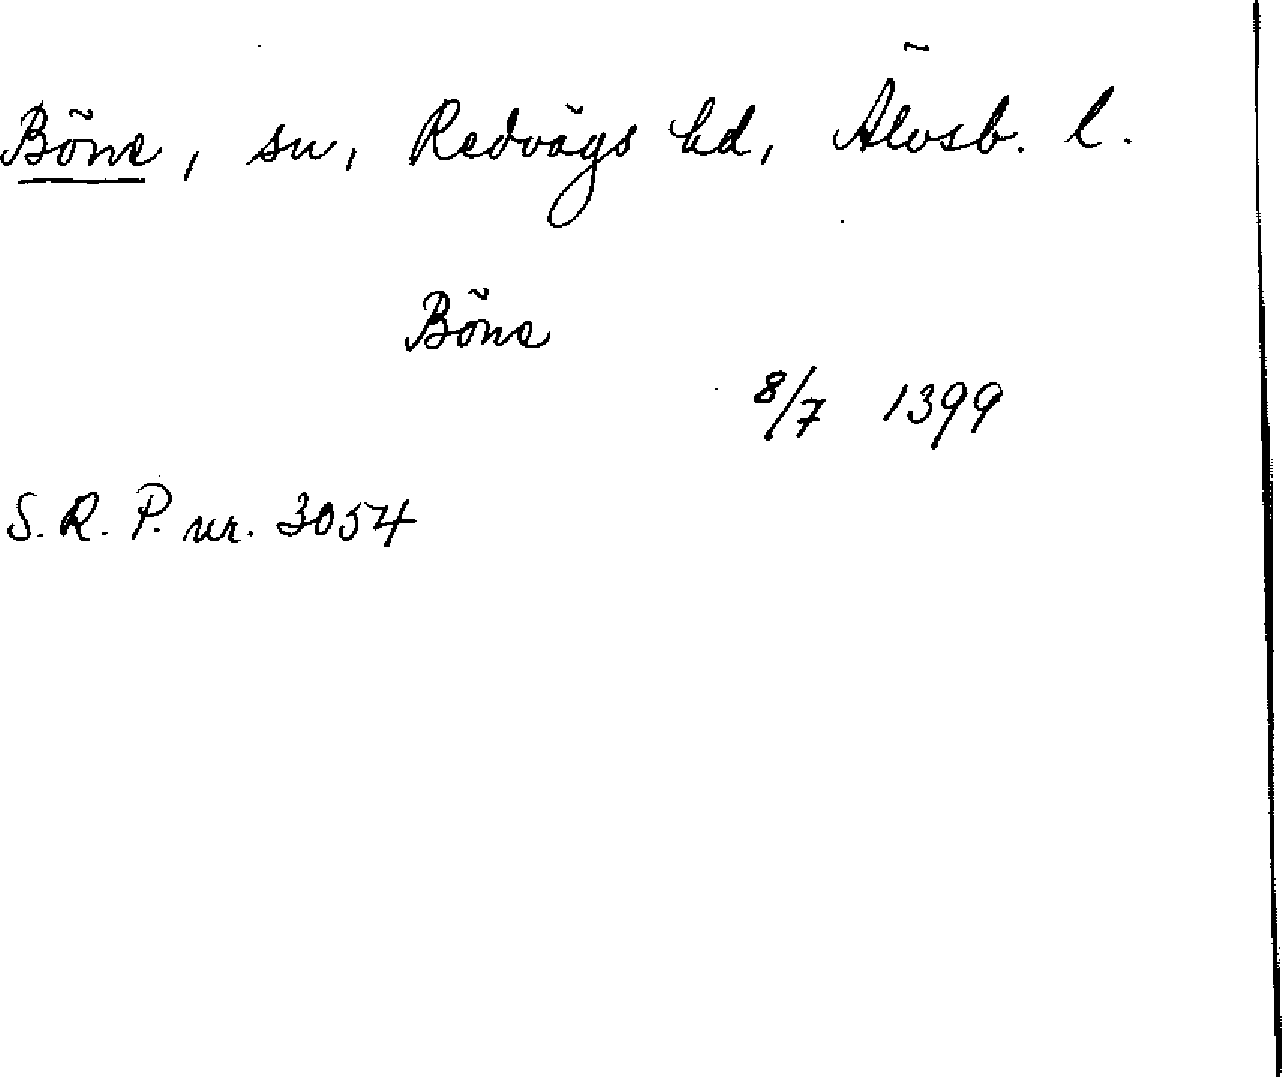 Böne, sn, Redvägs hd, Älvsb. l.
Böne
8/7 1399
S. R. P. nr. 3054